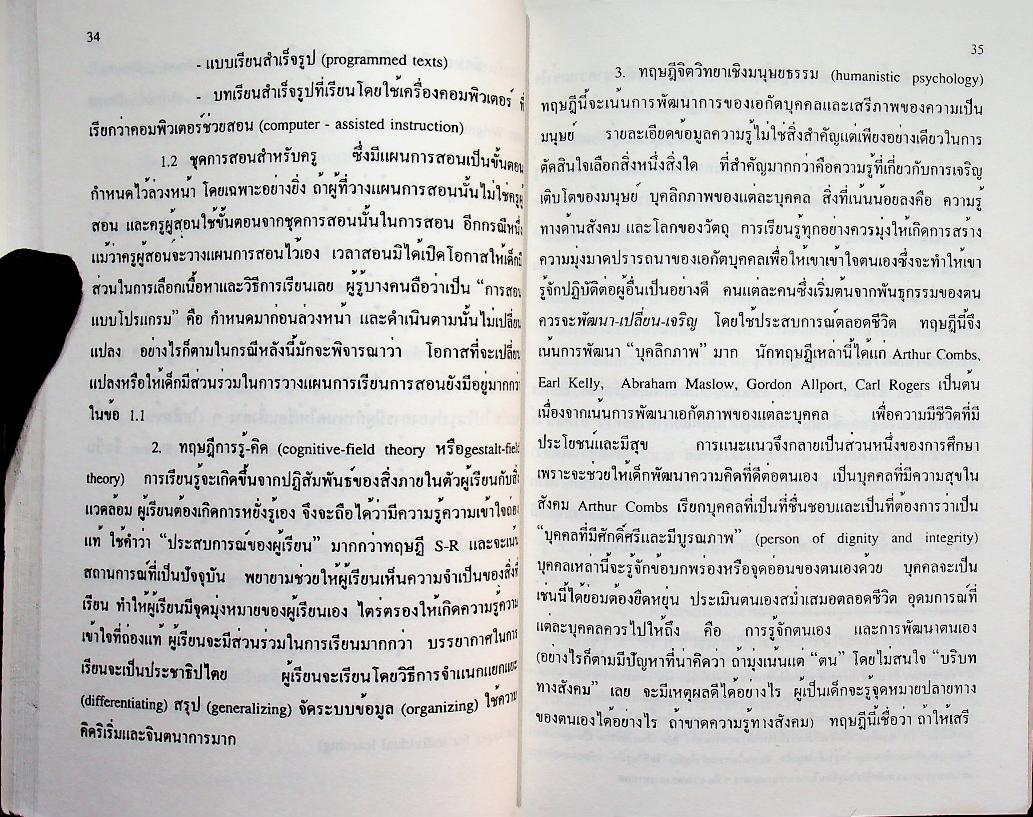 34
- แบบเรียนสำเร็จรูป (programmed texts)
- บทเรียนสำเร็จรูปที่เรียนโดยใช้เครื่องคอมพิวเตอร์ ที่
เรียกว่าคอมพิวเตอร์ช่วยสอน (computer - assisted instruction)
1.2 ชุดการสอนสำหรับครู ซึ่งมีแผนการสอนเป็นขั้นตอน
กำหนดไว้ล่วงหน้า โดยเฉพาะอย่างยิ่ง ถ้าผู้ที่วางแผนการสอนนั้นไม่ใช่ครูผู้
สอน และครูผู้สอนใช้ขั้นตอนจากชุดการสอนนั้นในการสอน อีกกรณีหนึ่ง
แม้ว่าครูผู้สอนจะวางแผนการสอนไว้เอง เวลาสอนมิได้เปิดโอกาสให้เด็กมี
ส่วนในการเลือกเนื้อหาและวิธีการเรียนเลย ผู้รู้บางคนถือว่าเป็น “การสอน
แบบโปรแกรม” คือ กำหนดมาก่อนล่วงหน้า และดำเนินตามนั้นไม่เปลี่ยน
แปลง อย่างไรก็ตามในกรณีหลังนี้มักจะพิจารณาว่า โอกาสที่จะเปลี่ยน
แปลงหรือให้เด็กมีส่วนร่วมในการวางแผนการเรียนการสอนยังมีอยู่มากกว่า
ในข้อ 1.1
2. ทฤษฎีการรู้-คิด (cognitive-field theory หรือgestalt-field
theory) การเรียนรู้จะเกิดขึ้นจากปฏิสัมพันธ์ของสิ่งภายในตัวผู้เรียนกับสิ่ง
แวดล้อม ผู้เรียนต้องเกิดการหยั่งรู้เอง จึงจะถือได้ว่ามีความรู้ความเข้าใจถ่อง
แท้ ใช้คำว่า “ประสบการณ์ของผู้เรียน” มากกว่าทฤษฎี S-R และจะเน้น
สถานการณ์ที่เป็นปัจจุบัน พยายามช่วยให้ผู้เรียนเห็นความจำเป็นของสิ่งที่
เรียน ทำให้ผู้เรียนมีจุดมุ่งหมายของผู้เรียนเอง ไตร่ตรองให้เกิดความรู้ความ
เข้าใจที่ถ่องแท้ ผู้เรียนจะมีส่วนร่วมในการเรียนมากกว่า บรรยากาศในการ
เรียนจะเป็นประชาธิปไตย ผู้เรียนจะเรียนโดยวิธีการจำแนกแยกแยะ
(differentiating) สรุป (generalizing) จัดระบบข้อมูล (organizing) ใช้ความ
คิดริเริ่มและจินตนาการมาก
35
3. ทฤษฎีจิตวิทยาเชิงมนุษยธรรม (humanistic psychology)
ทฤษฎีนี้จะเน้นการพัฒนาการของเอกัตบุคคลและเสรีภาพของความเป็น
มนุษย์ รายละเอียดข้อมูลความรู้ไม่ใช่สิ่งสำคัญแต่เพียงอย่างเดียวในการ
ตัดสินใจเลือกสิ่งหนึ่งสิ่งใด ที่สำคัญมากกว่าคือความรู้ที่เกี่ยวกับการเจริญ
เติบโตของมนุษย์ บุคลิกภาพของแต่ละบุคคล สิ่งที่เน้นน้อยลงคือ ความรู้
ทางด้านสังคม และโลกของวัตถุ การเรียนรู้ทุกอย่างควรมุ่งให้เกิดการสร้าง
ความมุ่งมาดปรารถนาของเอกัตบุคคลเพื่อให้เขาเข้าใจตนเองซึ่งจะทำให้เขา
รู้จักปฏิบัติต่อผู้อื่นเป็นอย่างดี คนแต่ละคนซึ่งเริ่มต้นจากพันธุกรรมของตน
ควรจะพัฒนา-เปลี่ยน-เจริญ โดยใช้ประสบการณ์ตลอดชีวิต ทฤษฎีนี้จึง
เน้นการพัฒนา “บุคลิกภาพ” มาก นักทฤษฎีเหล่านี้ได้แก่ Arthur Combs,
Earl Kelly, Abraham Maslow, Gordon Allport, Carl Rogers เป็นต้น
เนื่องจากเน้นการพัฒนาเอกัตภาพของแต่ละบุคคล เพื่อความมีชีวิตที่มี
ประโยชน์และมีสุข การแนะแนวจึงกลายเป็นส่วนหนึ่งของการศึกษา
เพราะจะช่วยให้เด็กพัฒนาความคิดที่ดีต่อตนเอง เป็นบุคคลที่มีความสุขใน
สังคม Arthur Combs เรียกบุคคลที่เป็นที่ชื่นชอบและเป็นที่ต้องการว่าเป็น
“บุคคลที่มีศักดิ์ศรีและมีบูรณภาพ” (person of dignity and integrity)
บุคคลเหล่านี้จะรู้จักข้อบกพร่องหรือจุดอ่อนของตนเองด้วย บุคคลจะเป็น
เช่นนี้ได้ย่อมต้องยืดหยุ่น ประเมินตนเองสม่ำเสมอตลอดชีวิต อุดมการณ์ที่
แต่ละบุคคลควรไปให้ถึง คือ การรู้จักตนเอง และการพัฒนาตนเอง
(อย่างไรก็ตามมีปัญหาที่น่าคิดว่า ถ้ามุ่งเน้นแต่ “ตน” โดยไม่สนใจ “บริบท
ทางสังคม” เลย จะมีเหตุผลดีได้อย่างไร ผู้เป็นเด็กจะรู้จุดหมายปลายทาง
ของตนเองได้อย่างไร ถ้าขาดความรู้ทางสังคม) ทฤษฎีนี้เชื่อว่า ถ้าให้เสรี